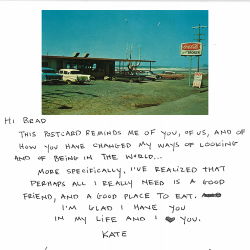 Coca-Cola
HI BRAD
THIS POSTCARD REMINDS ME OF YOU, OF US, AND OF
HOW YOU HAVE CHANGED MY WAYS OF LOOKING
AND OF BEING IN THE WORLD...
MORE SPECIFICALLY, I'VE REALIZED THAT
PERHAPS ALL I REALLY NEED IS A GOOD
FRIEND, AND A GOOD PLACE TO EAT.
I'M GLAD I HAVE YOU
IN MY LIFE AND I ♥ YOU.
KATE